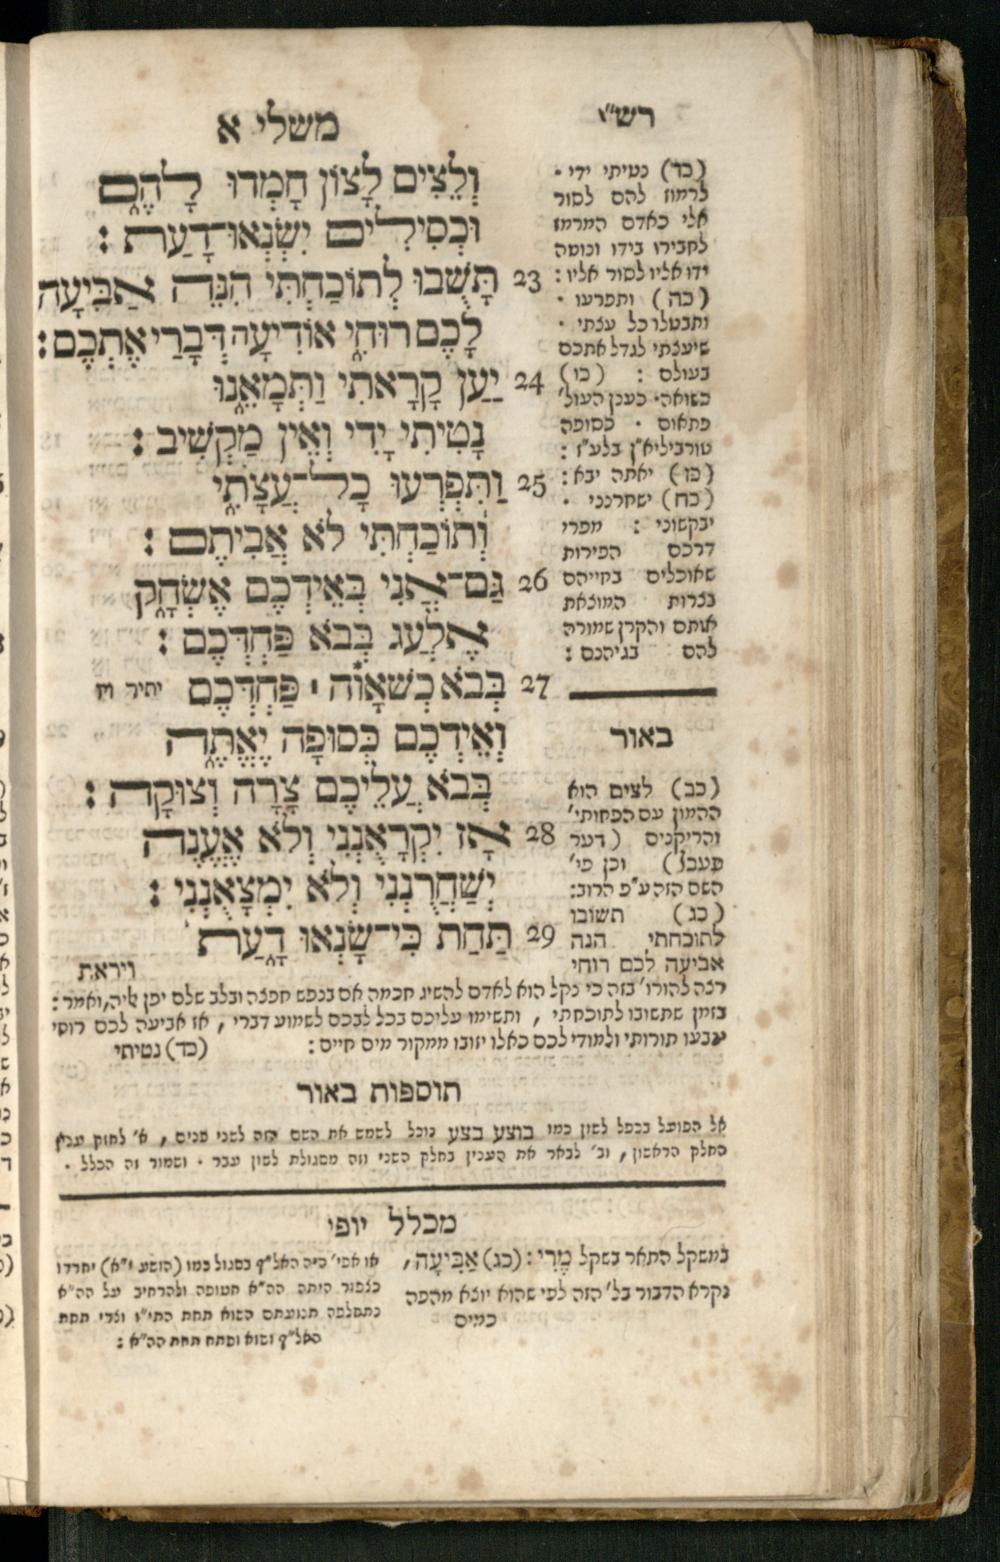 משלי א
רש״י
וְלֵצִים לָצוֹן חָמְדוּ לָהֶם
וּכְסִילִים יִשְׂנְאוּ־דָעַת :
23 תָּשֻׁבוּ לְתוֹכַחְתִּי הִנֵּה אַבִּיעָה
לָכֶם רוּחִי אוֹדִיעָה דְּבָרַי אֶתְכֶם :
24 יַעַן קָרָאתִי וַתְּמָאֵנוּ
נָטִיתִי יָדִי וְאֵין מַקְשִׁיב :
25 וַתִּפְרְעוּ כָל־עֲצָתִי
וְתוֹכַחְתִּי לֹא אֲבִיתֶם :
26 גַּם־אֲנִי בְּאֵידְכֶם אֶשְׂחָק
אֶלְעַג בְּבֹא פַחְדְּכֶם :
27 בְּבֹא כְשַׁאֲוָה ׀ פַּחְדְּכֶם יתיר וי׳
וְאֵידְכֶם כְּסוּפָה יֶאֱתֶה
בְּבֹא עֲלֵיכֶם צָרָה וְצוּקָה :
28 אָז יִקְרָאֻנְנִי וְלֹא אֶעֱנֶה
יְשַׁחֲרֻנְנִי וְלֹא יִמְצָאֻנְנִי :
29 תַּחַת כִּי־שָׂנְאוּ דָעַת
ויראת
(כד) נטיתי ידי ·
לרמוז להם לסור
אלי כאדם המרמז
לחבירו בידו ונוטה
ידו אליו לסור אליו :
(כה) ותפרעו ·
ותבטלו כל עצתי ·
שיעצתי לגדל אתכם
בעולם : (כו)
כשואה · כענן העול׳
פתאום · כסופה
טורביליא״ן בלע״ז :
(כז) יאתה יבא :
(כח) ישחרנני ·
יבקשוני : מפרי
דרכם הפירות
שאוכלים בחייהם
בצרות המוצאת
אותם והקרן שמורה
להם בגיהנם :
באור
(כב) לצים הוא
ההמון עם הפחותי׳
והריקנים (דער
פעבל) וכן פי׳
השם הזה ע״פ הרוב :
(כג) תשובו
לתוכחתי הנה
אביעה לכם רוחי
רצה להורו׳ בזה כי נקל הוא לאדם להשיג חכמה אם בנפש חפצה ובלב שלם יפן אליה, ואמר :
בזמן שתשובו לתוכחתי , ותשימו עליכם בכל לבבכם לשמוע דברי , אז אביעה לכם רוחי
ינבעו תורותי ולמודי לכם כאלו יזובו ממקור מים חיים : (כד) נטיתי
תוספות באור
אל הפועל בכפל לשון כמו בוצע בצע נוכל לשמש את השם הזה לשני פנים , א׳ לחזק ענין
החלק הראשון , וב׳ לבאר את הענין בחלק השני וזה מסגולת לשון עבר · ושמור זה הכלל ·
מכלל יופי
במשקל התאר בשקל מְרִי : (כג) אַבִּיעָה ,
נקרא הדבור בל׳ הזה לפי שהוא יוצא מהפה
כמים
או אפי׳ היה האל״ף בסגול כמו (הושע י״א) יחרדו
כצפור היתה הה״א חטופה ולהרחיב על הה״א
נתחלפה תנועתם השוא תחת התי״ו וצרי תחת
האל״ף ושוא ופתח תחת הה״א :